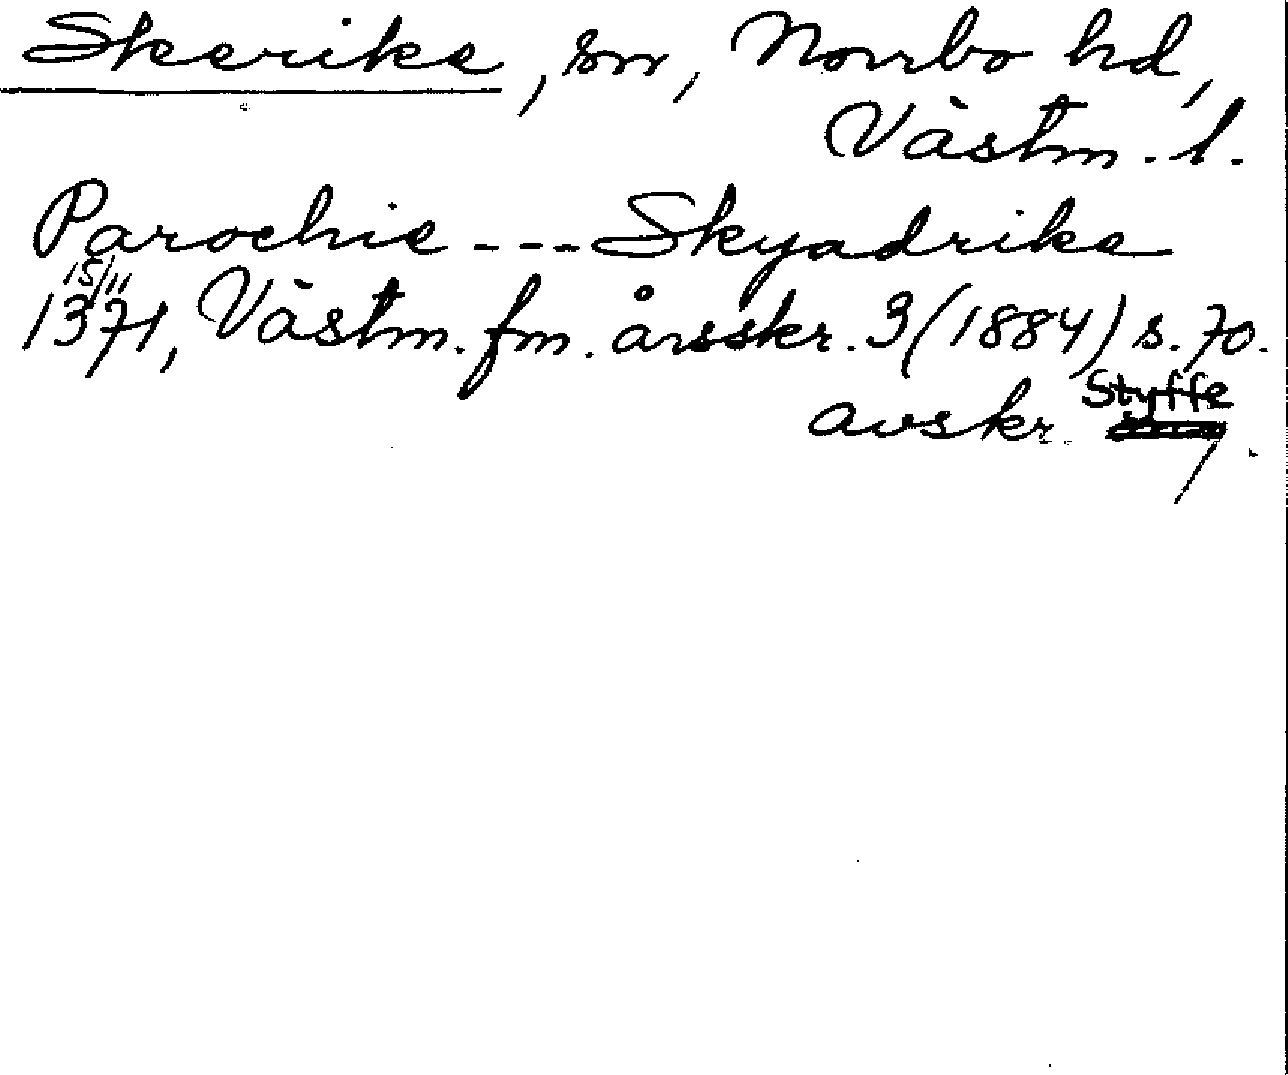 Skerike, sn, Norrbo hd,
Västm. l.
Parochie --- Skyadrike
15/11
1371, Västm. fm. årsskr. 3 (1884) s. 70.
avskr. Styffe